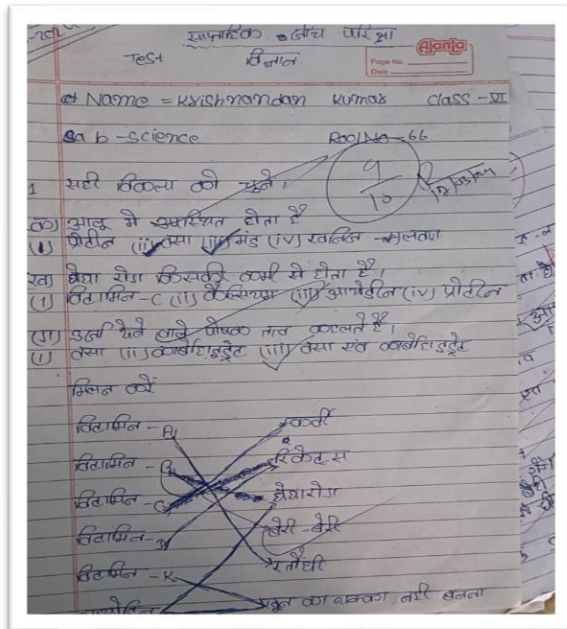 साप्ताहिक जाँच परिक्षा
Test विज्ञान
Ajanta
Page No.
Date
Name = Krishnandan Kumar Class - VI
Sab - Science Rool No - 66
9/10
1 सही विकल्प को चुने।
(क) आलू में उपस्थित होता है
(i) प्रोटीन (ii) वसा (iii) मंड (iv) खनिज लवण
(ख) घेघा रोग किसकी कमी से होता है।
(i) विटामिन - C (ii) कैल्सियम (iii) आयोडीन (iv) प्रोटीन
(ग) उर्जा देने वाले पोषक तत्व कहलाते है।
(i) वसा (ii) कार्बोहाइड्रेट (iii) वसा एवं कार्बोहाइड्रेट
मिलान करें
विटामिन - A स्कर्वी
विटामिन - B रिकेट्स
विटामिन - C घेघा रोग
विटामिन - D बेरी - बेरी
विटामिन - K रतौंधी
आयोडिन खून का थक्का नहीं बनना